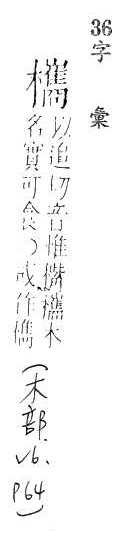 36 字彙
欈
以追切音惟欈木
名實可食 或作
(木部 V6. P64)